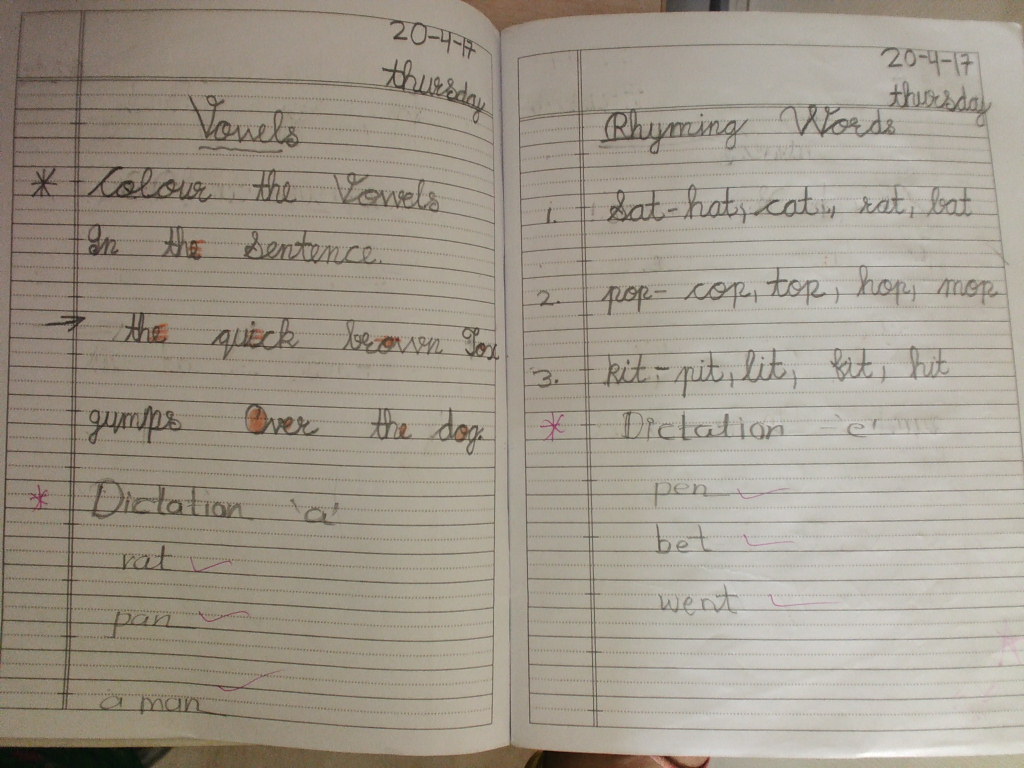 20-4-17
thursday
Vowels
* Colour the Vowels
In the Sentence.
→ the quick brown Fox
gumps Over the dog.
* Dictation 'a'
rat ✓
pan ✓
a man ✓
20-4-17
thursday
Rhyming Words
1. Sat-hat, cat, rat, bat
2. pop- cop, top, hop, mop
3. kit-pit, lit, fit, hit
* Dictation 'e'
pen ✓
bet ✓
went ✓